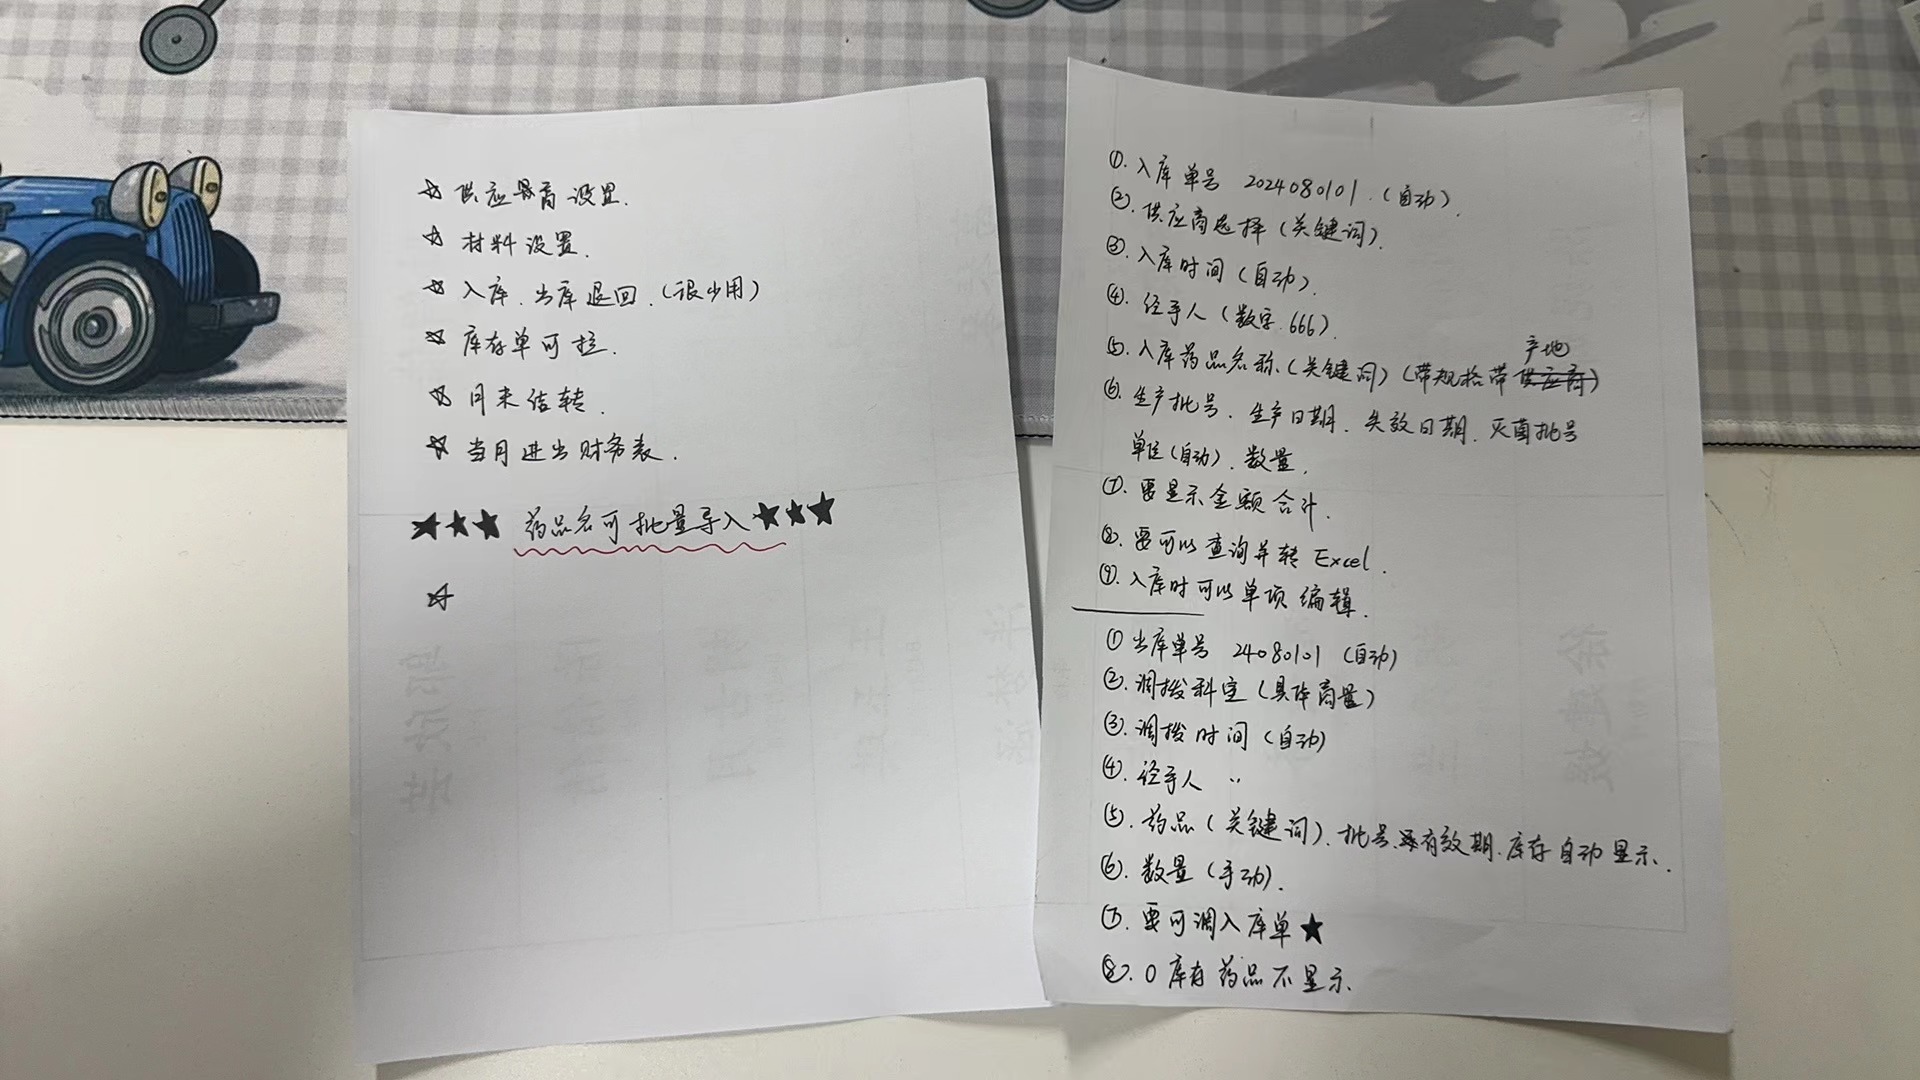 ☆ 供应商设置.
☆ 材料设置.
☆ 入库、出库退回.(很少用)
☆ 库存单可拉.
☆ 月末结转.
☆ 当月进出财务表.
★★★ 药品名可批量导入★★★
☆
①. 入库单号 2024080101.(自动).
②. 供应商选择(关键词).
③. 入库时间(自动).
④. 经手人(数字.666).
⑤. 入库药品名称(关键词)(带规格带产地)
⑥. 生产批号、生产日期、失效日期、灭菌批号
单位(自动)、数量.
⑦. 要显示金额合计.
⑧. 要可以查询并转Excel.
⑨. 入库时可以单项编辑.
① 出库单号 24080101 (自动)
②. 调拨科室(具体商量)
③. 调拨时间(自动)
④. 经手人 〃
⑤. 药品(关键词)、批号、有效期、库存自动显示.
⑥. 数量(手动).
⑦. 要可调入库单★
⑧. 0库存药品不显示.